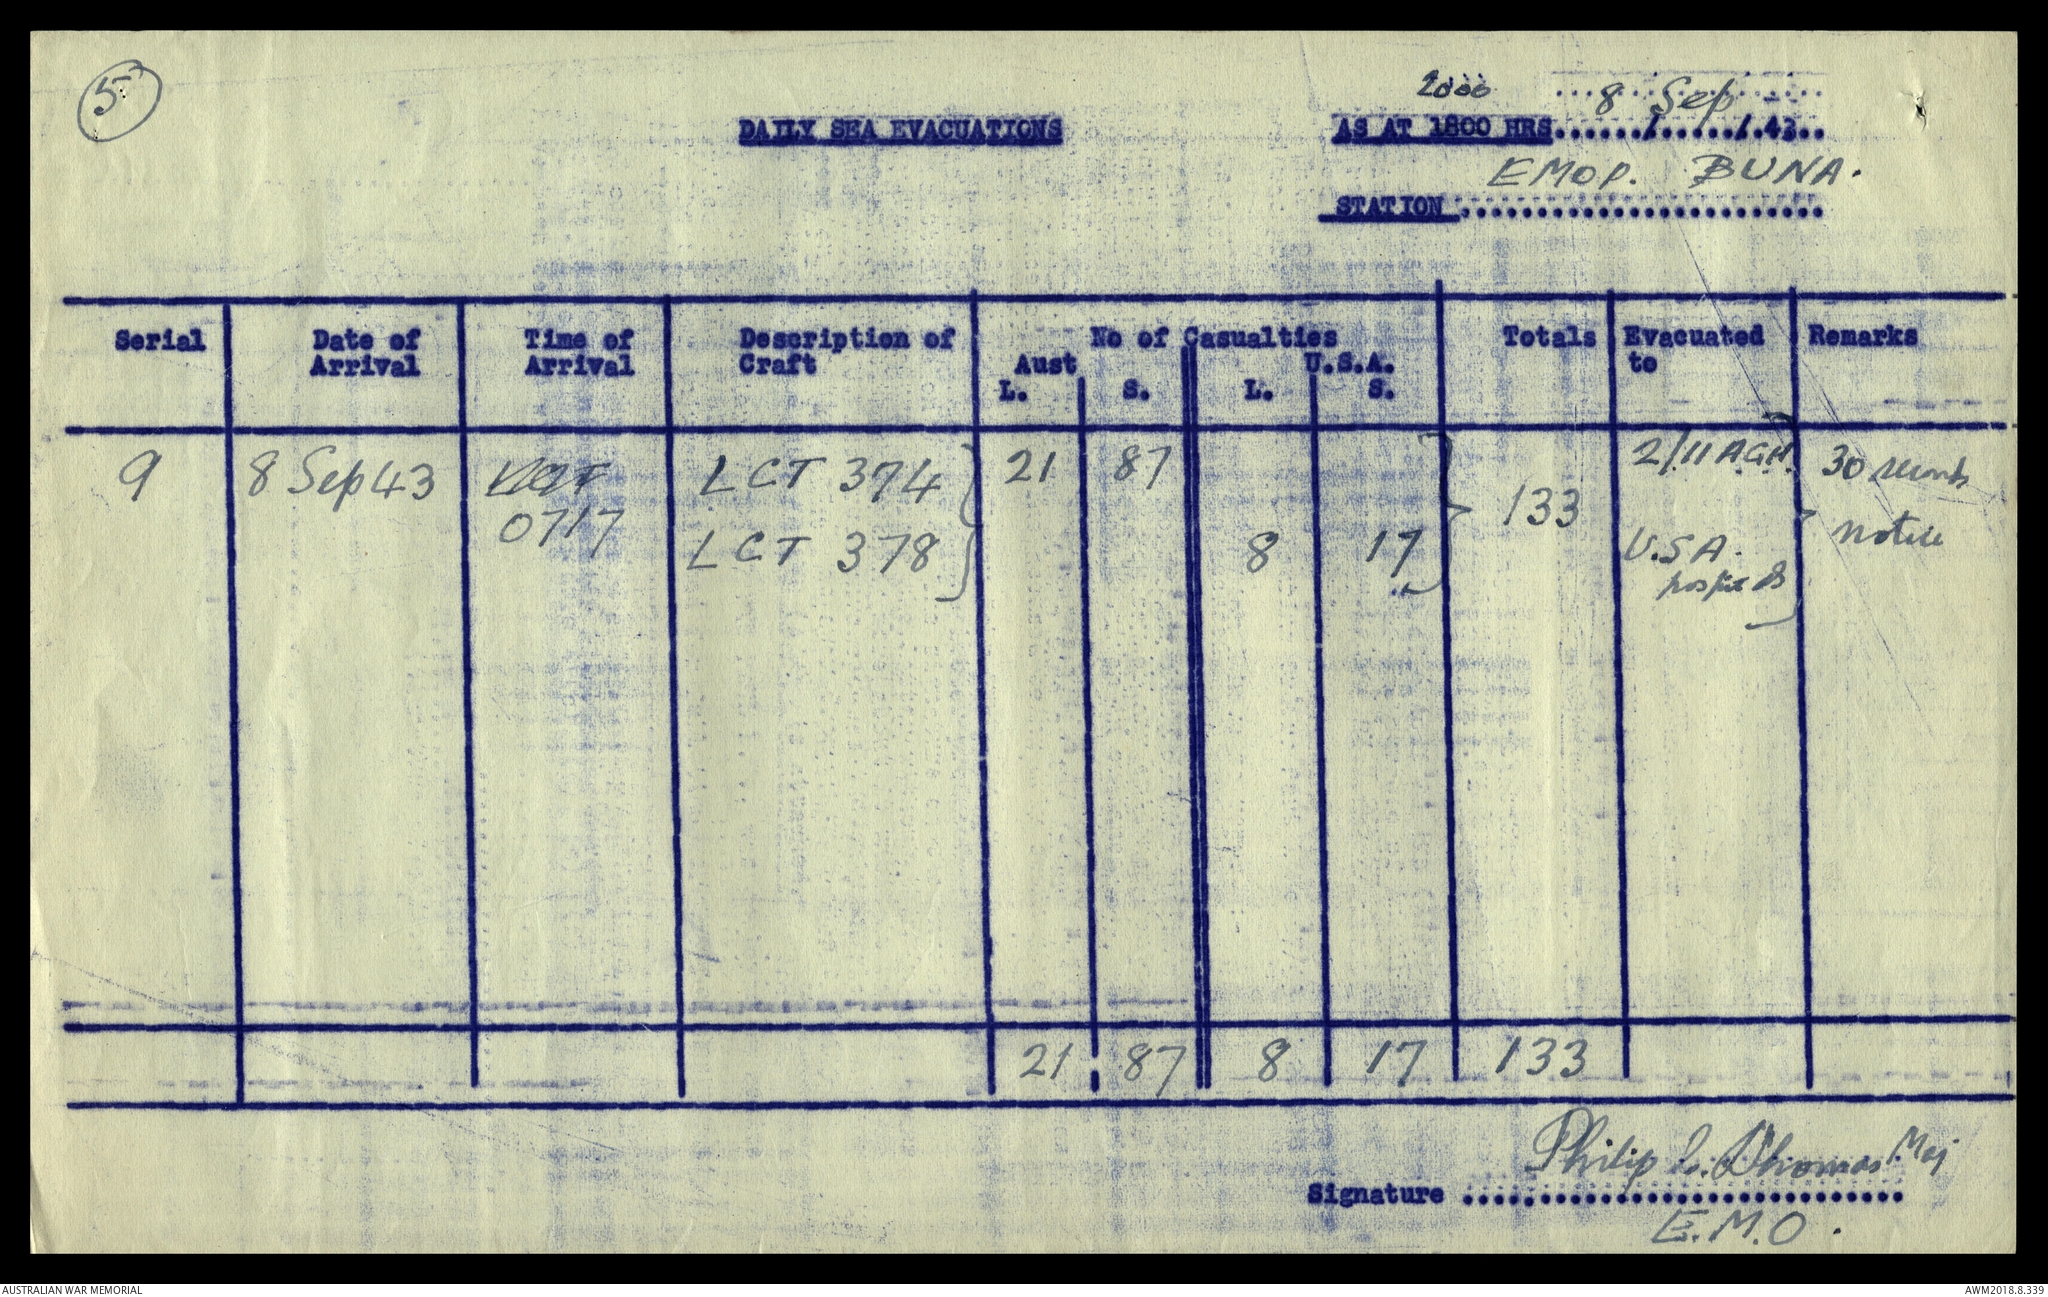 5
2000
8 Sep
DAILY SEA EVACUATIONS
AS AT 1800 HRS....../...../.43..
EMOP. BUNA.
STATION........................
Serial Date of Arrival Time of Arrival Description of Craft No of Casualties Totals Evacuated to Remarks
Aust U.S.A.
L. S. L. S.
9 8 Sep 43 LCT 374 21 87 2/11 A.G.H. 30 seconds
0717 LCT 378 8 17 133 U.S.A. hospitals notice
21 87 8 17 133
Philip L. Thomas Maj
Signature .............................
E.M.O.
AUSTRALIAN WAR MEMORIAL
AWM2018.8.339